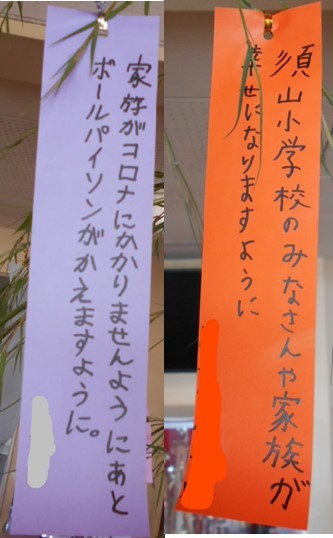 家族がコロナにかかりませんようにあと
ボールパイソンがかえますように。
須山小学校のみなさんや家族が
幸せになりますように